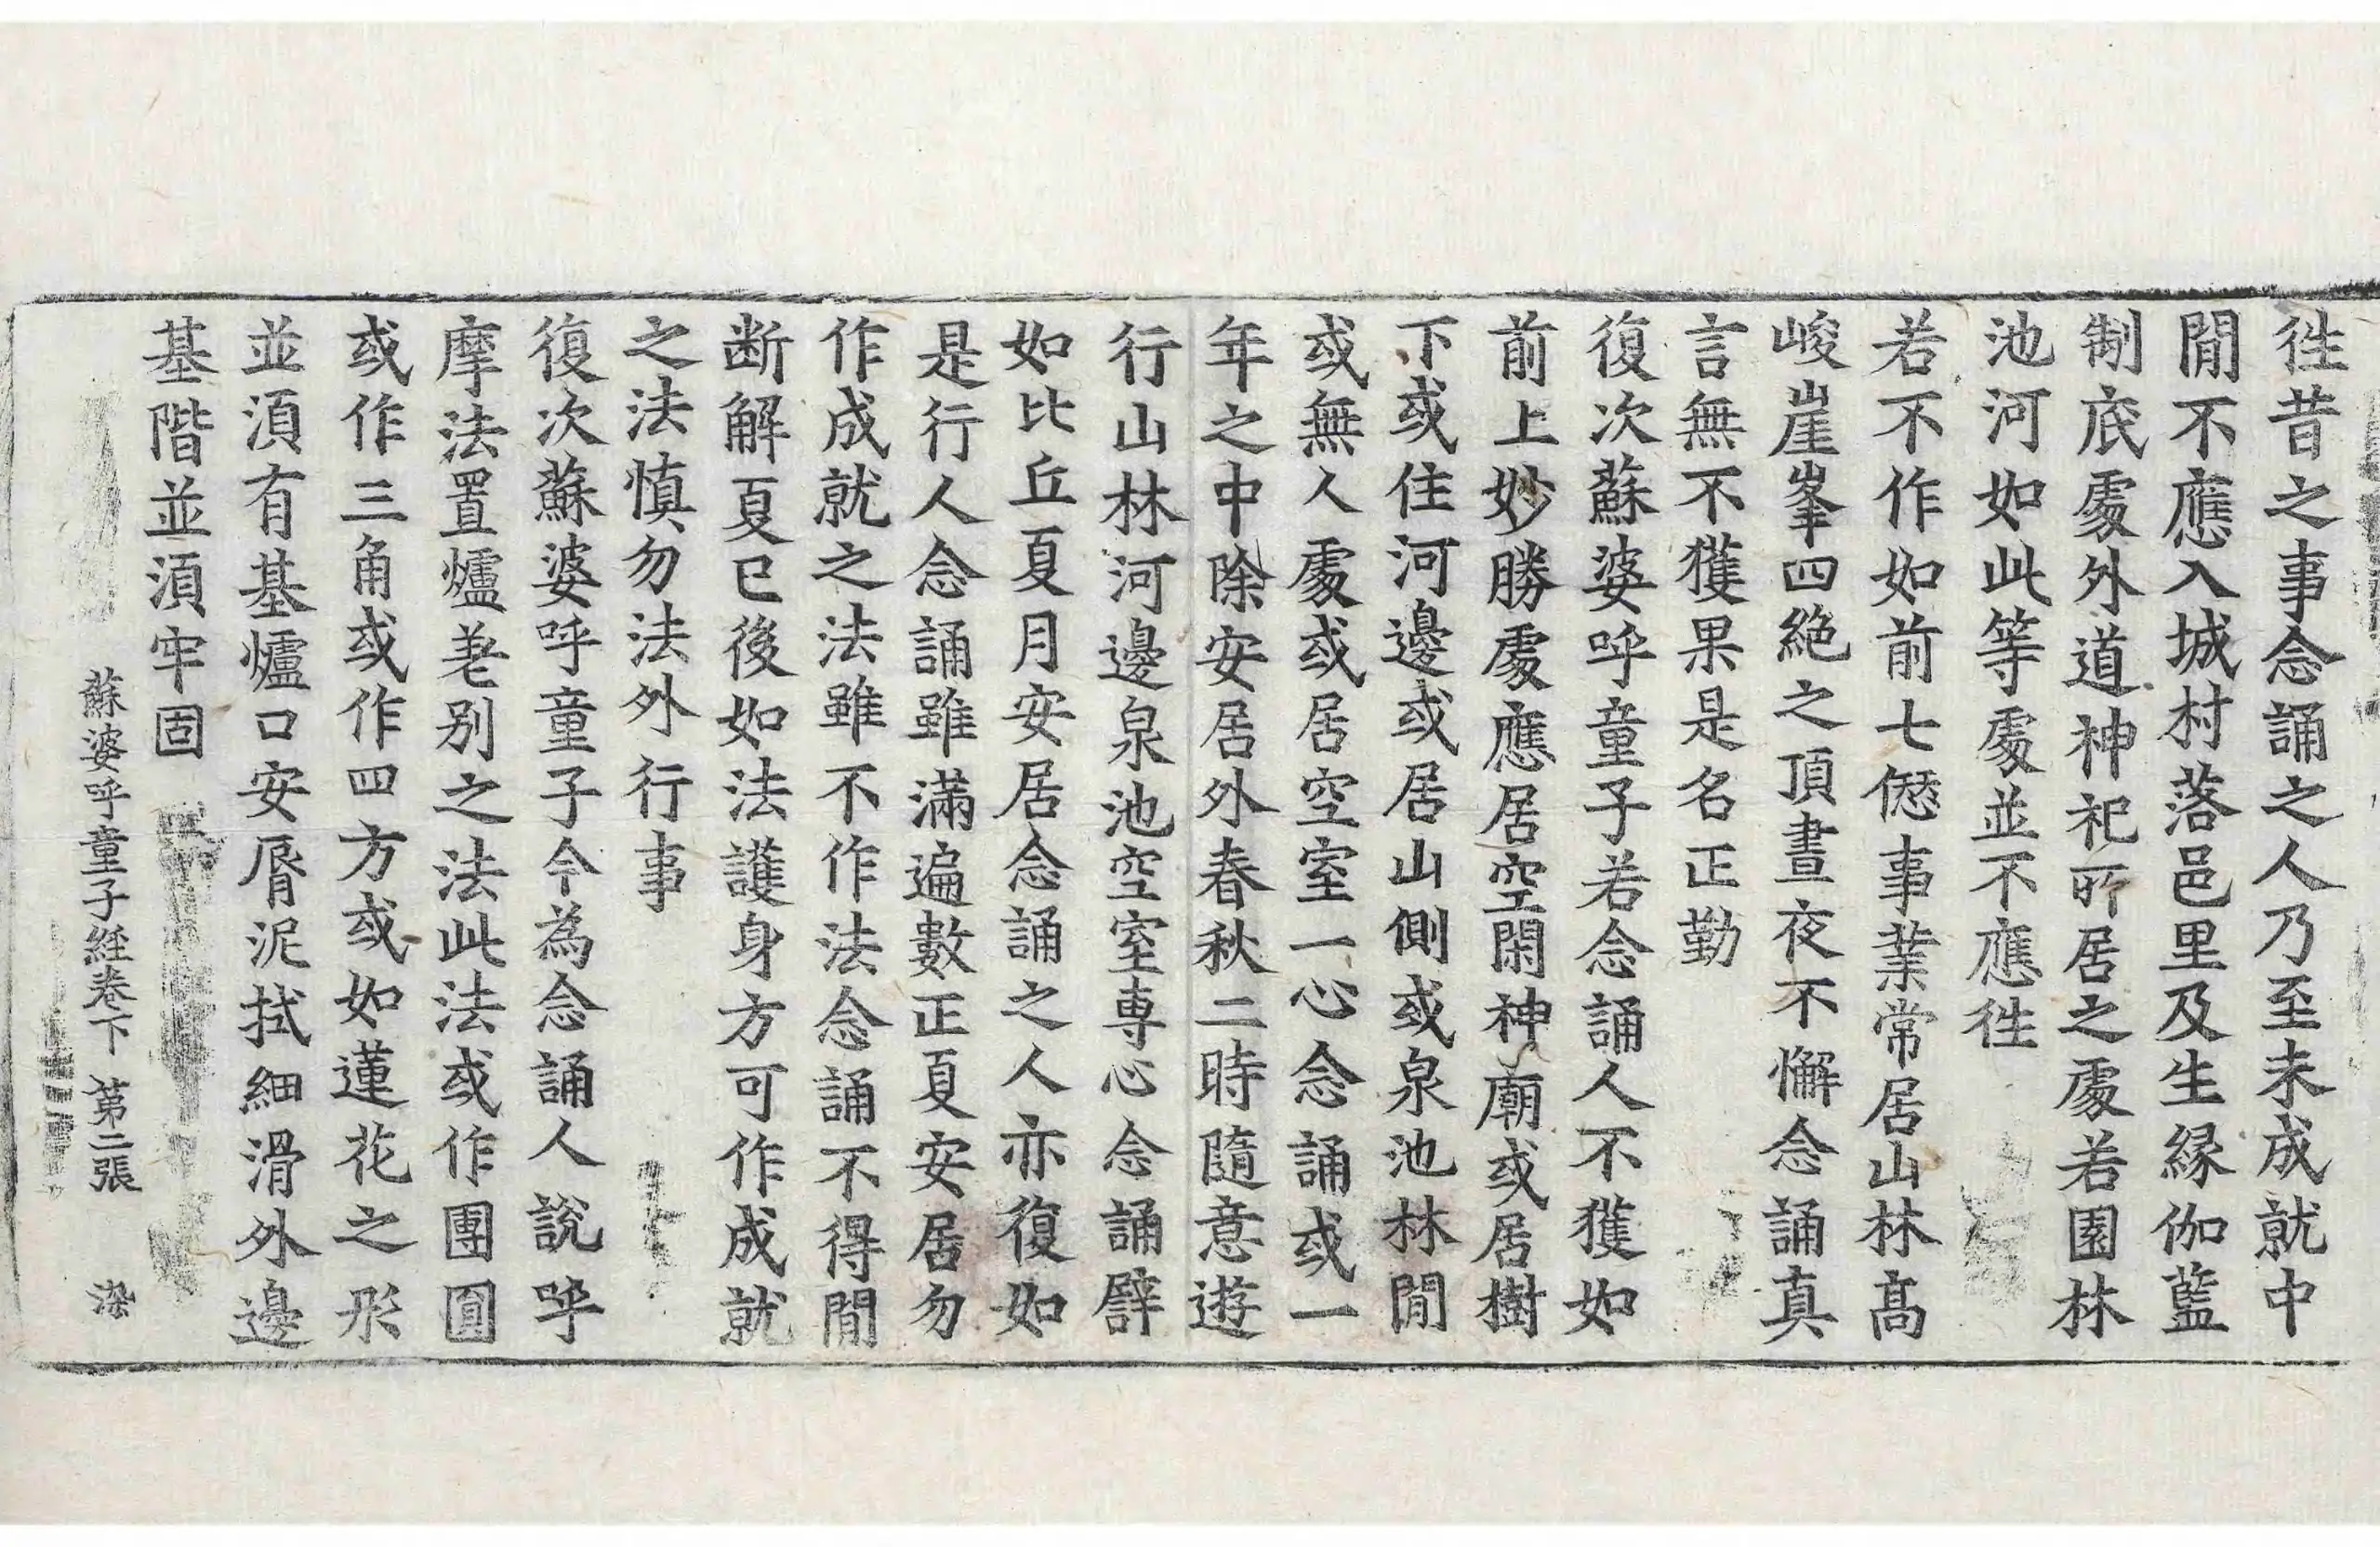 徃昔之事念誦之人乃至未成就中
閒不應入城村落邑里及生緣伽藍
制底處外道神祀所居之處若園林
池河如此等處並不應徃
若不作如前七𠎝事業常居山林髙
峻崖峯四絶之頂晝夜不懈念誦真
言無不獲果是名正勤
復次蘇婆呼童子若念誦人不獲如
前上妙勝處應居空閑神廟或居樹
下或住河邊或居山側或泉池林閒
或無人處或居空室一心念誦或一
年之中除安居外春秋二時隨意遊
行山林河邊泉池空室專心念誦譬
如比丘夏月安居念誦之人亦復如
是行人念誦雖滿遍數正夏安居勿
作成就之法雖不作法念誦不得閒
断解夏已後如法護身方可作成就
之法慎勿法外行事
復次蘇婆呼童子今為念誦人說呼
摩法置爐差别之法此法或作團圓
或作三角或作四方或如蓮花之形
並湏有基爐口安脣泥拭細滑外邊
基階並湏牢固
蘇婆呼童子經卷下 第二張 染